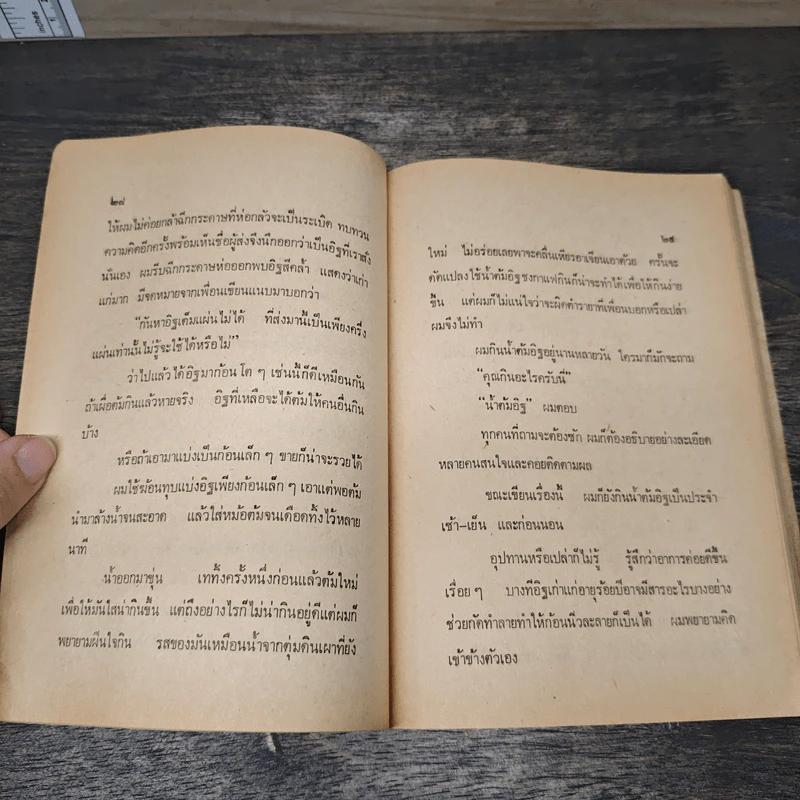 inches
๒๘
ให้ผมไม่ค่อยกล้าฉีกกระดาษที่ห่อกลัวจะเป็นระเบิด ทบทวน
ความคิดอีกครั้งพร้อมเห็นชื่อผู้ส่งจึงนึกออกว่าเป็นอิฐที่เราสั่ง
นั่นเอง ผมรีบฉีกกระดาษห่อออกพบอิฐสีคล้ำ แสดงว่าเก่า
แก่มาก มีจดหมายจากเพื่อนเขียนแนบมาบอกว่า
“กันหาอิฐเต็มแผ่นไม่ได้ ที่ส่งมานี้เป็นเพียงครึ่ง
แผ่นเท่านั้นไม่รู้จะใช้ได้หรือไม่”
ว่าไปแล้วได้อิฐมาก้อนโต ๆ เช่นนี้ก็ดีเหมือนกัน
ถ้าเผื่อต้มกินแล้วหายจริง อิฐที่เหลือจะได้ต้มให้คนอื่นกิน
บ้าง
หรือถ้าเอามาแบ่งเป็นก้อนเล็ก ๆ ขายก็น่าจะรวยได้
ผมใช้ฆ้อนทุบแบ่งอิฐเพียงก้อนเล็ก ๆ เอาแต่พอต้ม
นำมาล้างน้ำจนสะอาด แล้วใส่หม้อต้มจนเดือดทิ้งไว้หลาย
นาที
น้ำออกมาขุ่น เททิ้งครั้งหนึ่งก่อนแล้วต้มใหม่
เพื่อให้มันใสน่ากินขึ้น แต่ถึงอย่างไรก็ไม่น่ากินอยู่ดีแต่ผมก็
พยายามฝืนใจกิน รสของมันเหมือนน้ำจากตุ่มดินเผาที่ยัง
๒๙
ใหม่ ไม่อร่อยเลยพาจะคลื่นเหียรอาเจียนเอาด้วย ครั้นจะ
ดัดแปลงใช้น้ำต้มอิฐชงกาแฟกินก็น่าจะทำได้เพื่อให้กินง่าย
ขึ้น แต่ผมก็ไม่แน่ใจว่าจะผิดตำรายาที่เพื่อนบอกหรือเปล่า
ผมจึงไม่ทำ
ผมกินน้ำต้มอิฐอยู่นานหลายวัน ใครมาก็มักจะถาม
“คุณกินอะไรครับนี่”
“น้ำต้มอิฐ” ผมตอบ
ทุกคนที่ถามจะต้องซัก ผมก็ต้องอธิบายอย่างละเอียด
หลายคนสนใจและคอยติดตามผล
ขณะเขียนเรื่องนี้ ผมก็ยังกินน้ำต้มอิฐเป็นประจำ
เช้า–เย็น และก่อนนอน
อุปทานหรือเปล่าก็ไม่รู้ รู้สึกว่าอาการค่อยดีขึ้น
เรื่อย ๆ บางทีอิฐเก่าแก่อายุร้อยปีอาจมีสารอะไรบางอย่าง
ช่วยกัดทำลายทำให้ก้อนนิ่วละลายก็เป็นได้ ผมพยายามคิด
เข้าข้างตัวเอง